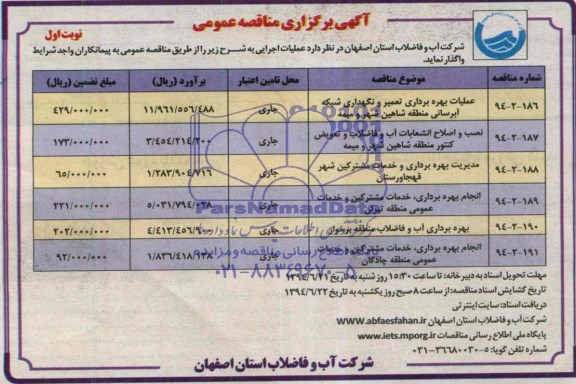 آگهی برگزاری مناقصه عمومی
نوبت اول
شرکت آب و فاضلاب استان اصفهان در نظر دارد عملیات اجرایی به شرح زیر را از طریق مناقصه عمومی به پیمانکاران واجد شرایط
واگذار نماید.
شماره مناقصه موضوع مناقصه محل تامین اعتبار برآورد (ریال) مبلغ تضمین (ریال)
۹۴-۲-۱۸۶ عملیات بهره برداری تعمیر و نگهداری شبکه آبرسانی منطقه شاهین شهر و میمه جاری ۱۱/۹۶۱/۵۵۶/۴۸۸ ۴۲۹/۰۰۰/۰۰۰
۹۴-۲-۱۸۷ نصب و اصلاح انشعابات آب و فاضلاب و تعویض کنتور منطقه شاهین شهر و میمه جاری ۳/۴۵۴/۲۱۴/۲۰۰ ۱۷۳/۰۰۰/۰۰۰
۹۴-۲-۱۸۸ مدیریت بهره برداری و خدمات مشترکین شهر قهجاورستان جاری ۱/۲۸۳/۹۰۴/۷۱۶ ۶۵/۰۰۰/۰۰۰
۹۴-۲-۱۸۹ انجام بهره برداری، خدمات مشترکین و خدمات عمومی منطقه تیران جاری ۵/۰۳۱/۷۹۴/۰۲۸ ۲۲۱/۰۰۰/۰۰۰
۹۴-۲-۱۹۰ بهره برداری آب و فاضلاب منطقه برخوار جاری ۲۰۲/۰۰۰/۰۰۰
۹۴-۲-۱۹۱ انجام بهره برداری، خدمات مشترکین و خدمات عمومی منطقه چادگان جاری ۱/۸۳۶/۴۱۸/۹۳۸ ۹۲/۰۰۰/۰۰۰
ParsNamadData
پایگاه اطلاع رسانی مناقصه و مزایده
۰۲۱-۸۸۳۴۹۶۷۰-۵
مهلت تحویل اسناد به دبیرخانه: تا ساعت ۱۵:۳۰ روز شنبه به تاریخ ۱۳۹۴/۶/۲۱
تاریخ گشایش اسناد مناقصه: از ساعت ۸ صبح روز یکشنبه به تاریخ ۱۳۹۴/۶/۲۲
دریافت اسناد: سایت اینترنتی
شرکت آب و فاضلاب استان اصفهان WWW.abfaesfahan.ir
پایگاه ملی اطلاع رسانی مناقصات www.iets.mporg.ir
شماره تلفن گویا: ۵-۳۶۶۸۰۰۳۰-۰۳۱
شرکت آب و فاضلاب استان اصفهان